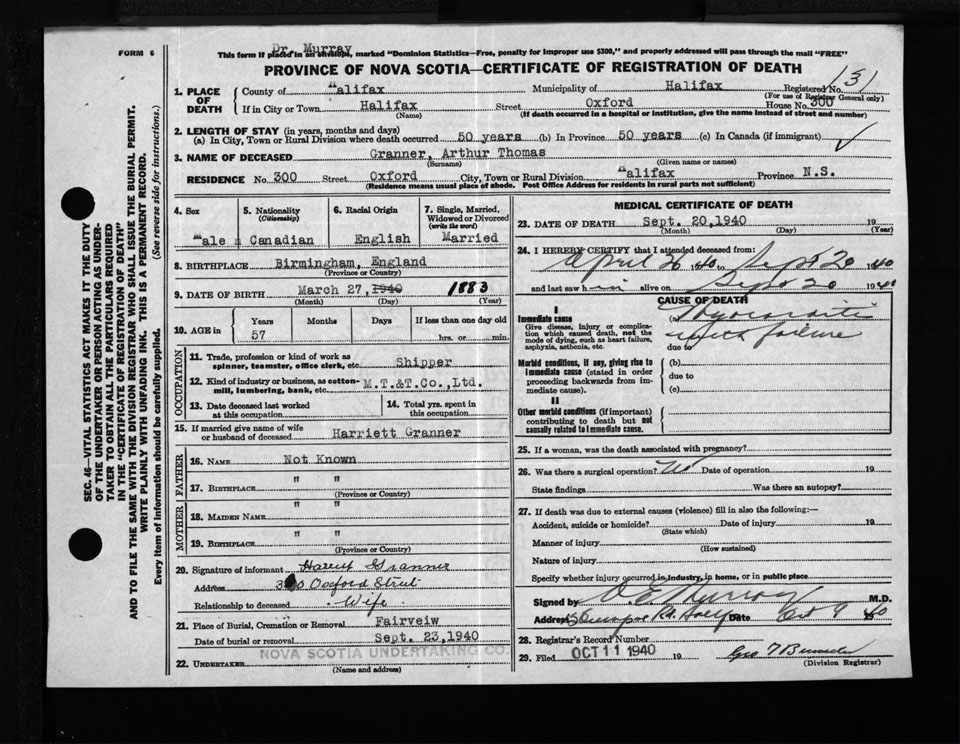 FORM 6
Dr. Murray
This form if placed in an envelope, marked "Dominion Statistics—Free, penalty for improper use $300," and properly addressed will pass through the mail "FREE"
PROVINCE OF NOVA SCOTIA—CERTIFICATE OF REGISTRATION OF DEATH
1. PLACE OF DEATH
County of Halifax Municipality of Halifax Registered No.
(For use of Registrar General only)
If in City or Town Halifax Street Oxford House No. 300
(Name) (If death occurred in a hospital or institution, give the name instead of street and number)
2. LENGTH OF STAY (in years, months and days)
(a) In City, Town or Rural Division where death occurred 50 years (b) In Province 50 years (c) In Canada (if immigrant)
3. NAME OF DECEASED Granner, Arthur Thomas
(Surname) (Given name or names)
RESIDENCE No. 300 Street Oxford City, Town or Rural Division Halifax Province N.S.
(Residence means usual place of abode. Post Office Address for residents in rural parts not sufficient)
4. Sex
Male m
5. Nationality
(Citizenship)
Canadian
6. Racial Origin
English
7. Single, Married, Widowed or Divorced
(write the word)
Married
8. BIRTHPLACE Birmingham, England
(Province or Country)
9. DATE OF BIRTH March 27, 1940 1883
(Month) (Day) (Year)
10. AGE in
Years Months Days If less than one day old
57 hrs. or min.
OCCUPATION
11. Trade, profession or kind of work as spinner, teamster, office clerk, etc. Shipper
12. Kind of industry or business, as cotton-mill, lumbering, bank, etc. M.T.&T.Co.,Ltd.
13. Date deceased last worked at this occupation
14. Total yrs. spent in this occupation
15. If married give name of wife or husband of deceased Harriett Granner
FATHER
16. NAME Not Known
17. BIRTHPLACE " "
(Province or Country)
MOTHER
18. MAIDEN NAME " "
19. BIRTHPLACE " "
(Province or Country)
20. Signature of informant Granner
Address Oxford Street
Relationship to deceased Wife
21. Place of Burial, Cremation or Removal Fairveiw
Date of burial or removal Sept. 23,1940
22. UNDERTAKER NOVA SCOTIA UNDERTAKING CO.
(Name and address)
MEDICAL CERTIFICATE OF DEATH
23. DATE OF DEATH Sept. 20,1940 19
(Month) (Day) (Year)
24. I HEREBY CERTIFY that I attended deceased from:
April 26 40 to Sept 20 1940
and last saw h im alive on Sept 20 1940
CAUSE OF DEATH
I
Immediate cause
Give disease, injury or complication which caused death, not the mode of dying, such as heart failure, asphyxia, asthenia, etc.
(a) Myocarditis
with failure
due to
Morbid conditions, if any, giving rise to immediate cause (stated in order proceeding backwards from immediate cause).
(b)
due to
(c)
II
Other morbid conditions (if important) contributing to death but not causally related to immediate cause.
25. If a woman, was the death associated with pregnancy?
26. Was there a surgical operation? No Date of operation 19
State findings Was there an autopsy?
27. If death was due to external causes (violence) fill in also the following:—
Accident, suicide or homicide? Date of injury 19
(State which)
Manner of injury
(How sustained)
Nature of injury
Specify whether injury occurred in industry, in home, or in public place
Signed by Murray M.D.
Address Date Oct 9 40
28. Registrar's Record Number
29. Filed OCT 11 1940 19
(Division Registrar)
SEC. 46—VITAL STATISTICS ACT MAKES IT THE DUTY
OF THE UNDERTAKER OR PERSON ACTING AS UNDER-
TAKER TO OBTAIN ALL THE PARTICULARS REQUIRED
IN THE "CERTIFICATE OF REGISTRATION OF DEATH"
AND TO FILE THE SAME WITH THE DIVISION REGISTRAR WHO SHALL ISSUE THE BURIAL PERMIT.
WRITE PLAINLY WITH UNFADING INK. THIS IS A PERMANENT RECORD.
Every item of information should be carefully supplied. (See reverse side for instructions.)